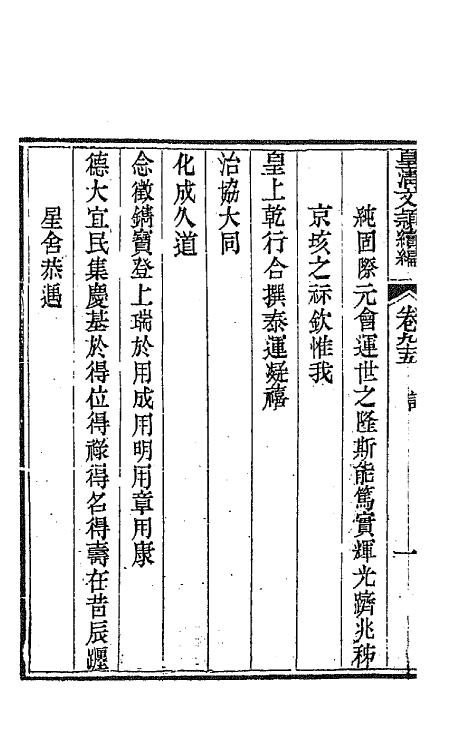 皇清文頴續編
卷九五
一
純固際元會運世之隆斯能篤實輝光躋兆秭
京垓之祘欽惟我
皇上乾行合撰泰運凝禧
治協大同
化成久道
念徵鑄寶登上瑞於用成用明用章用康
德大宜民集慶基於得位得祿得名得壽在昔辰躔
星舍恭遇